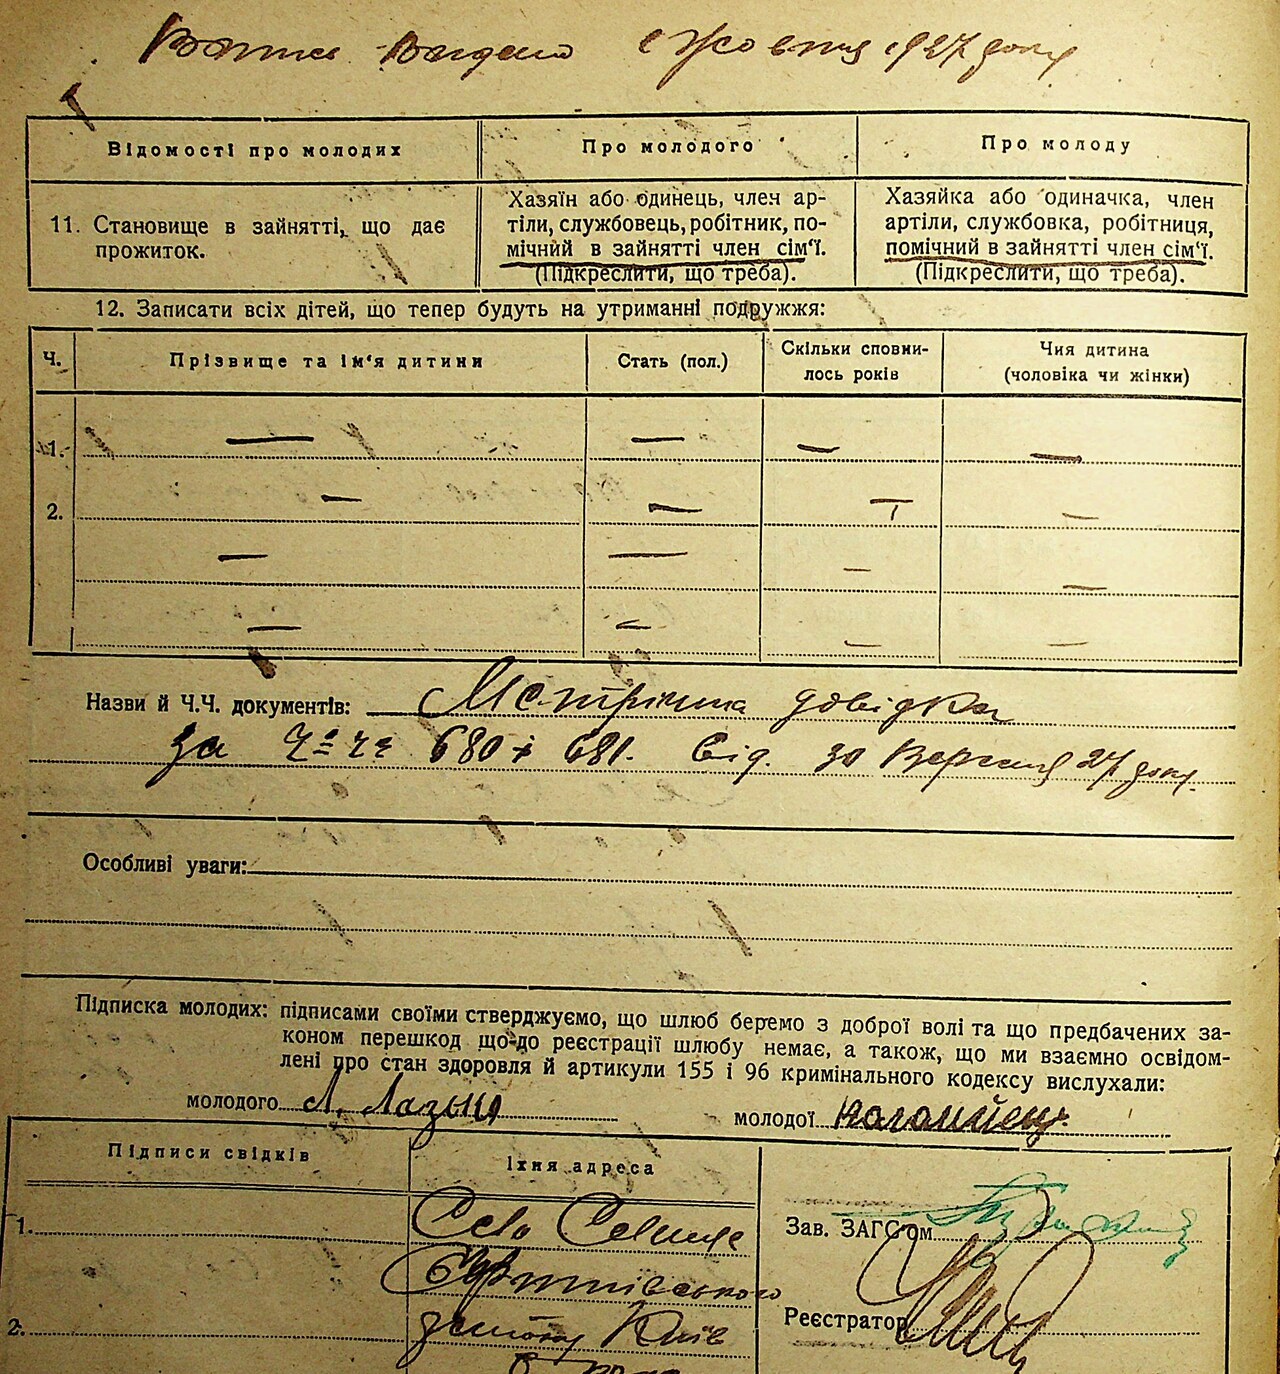 Жовтня 1927 року
Відомості про молодих
Про молодого
Про молоду
11. Становище в зайнятті, що дає
прожиток.
Хазяїн або одинець, член ар-
тіли, службовець, робітник, по-
мічний в зайнятті член сім‘ї.
(Підкреслити, що треба).
Хазяйка або одиначка, член
артіли, службовка, робітниця,
помічний в зайнятті член сім‘ї.
(Підкреслити, що треба).
12. Записати всіх дітей, що тепер будуть на утриманні подружжя:
Ч.
Прізвище та ім‘я дитини
Стать (пол.)
Скільки сповни-
лось років
Чия дитина
(чоловіка чи жінки)
1. — — — —
2. — — — —
— — — —
— — — —
Назви й Ч.Ч. документів: Метрічна довідка
за Ч. Ч. 680 і 681. Від. 30 Вересня 27 року.
Особливі уваги:
Підписка молодих: підписами своїми стверджуємо, що шлюб беремо з доброї волі та що предбачених за-
коном перешкод що-до реєстрації шлюбу немає, а також, що ми взаємно освідом-
лені про стан здоровля й артикули 155 і 96 кримінального кодексу вислухали:
молодого Л. Лазым
молодої Коломієць
Підписи свідків
Їхня адреса
1.
Село
2.
району Київ
Зав. ЗАГС‘ом
Реєстратор